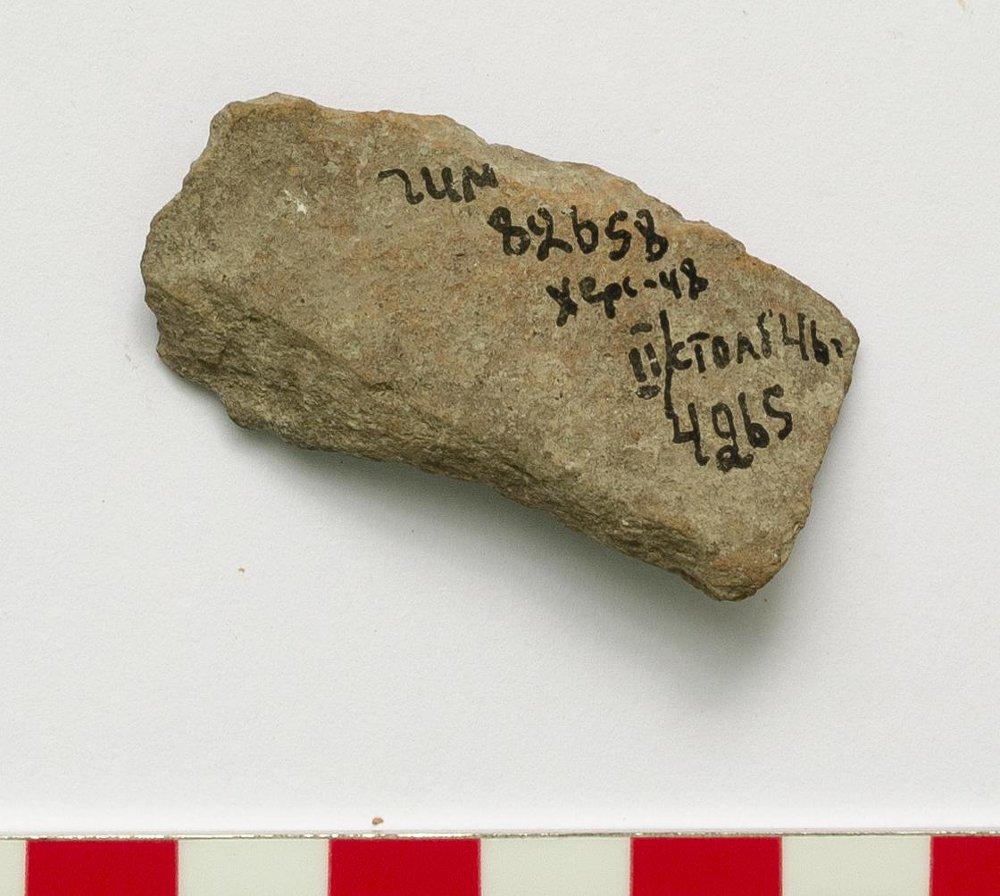 гим
82658
херс-48
II/столб 46г
4265